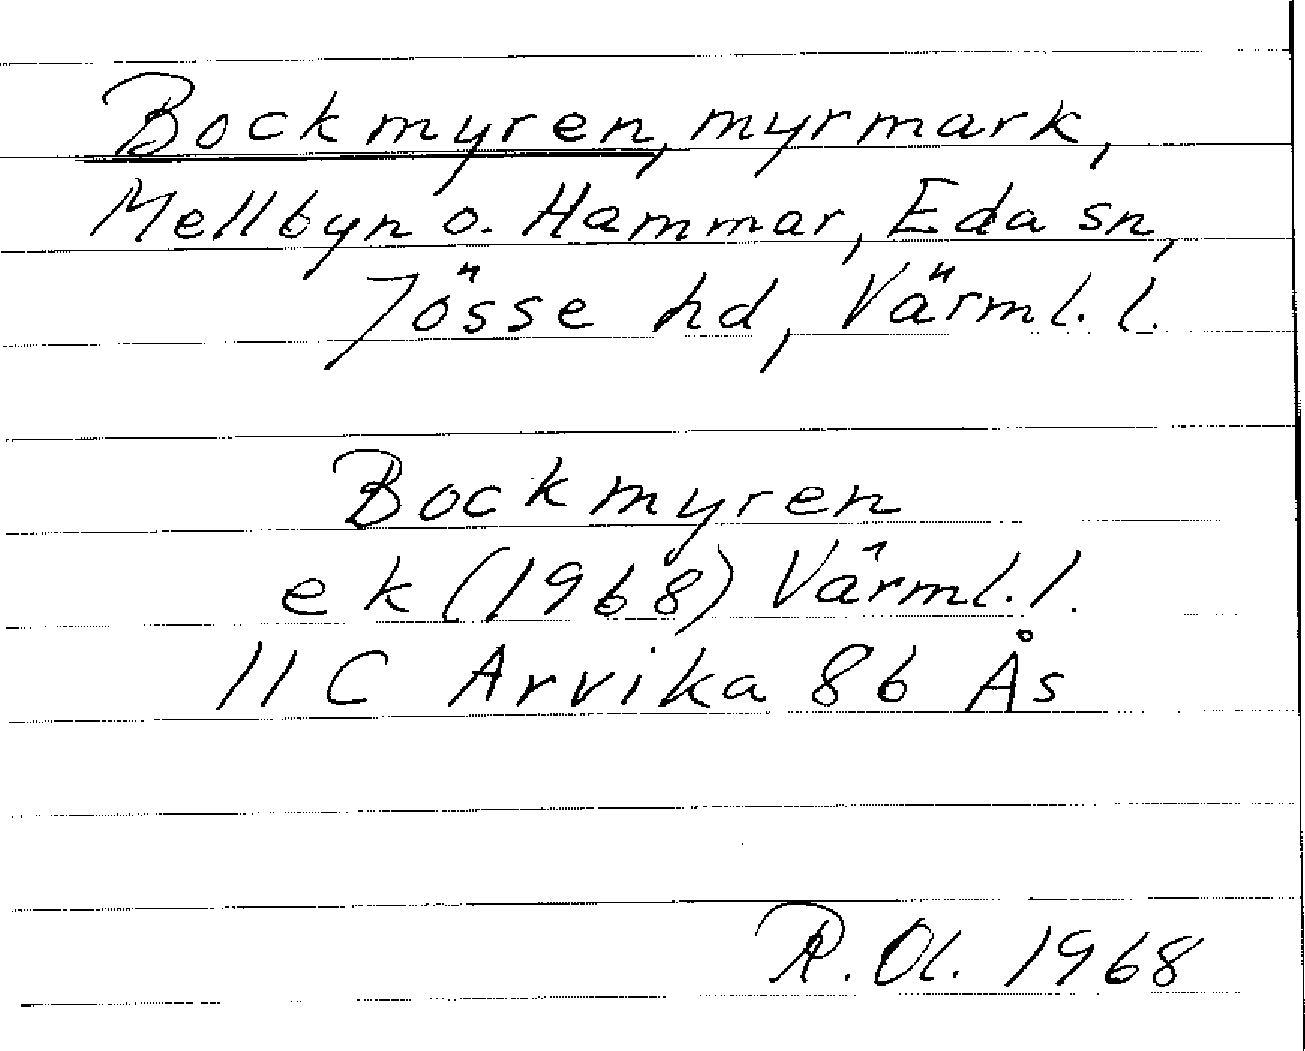 Bockmyren, myrmark,
Mellbyn o. Hammar, Eda sn,
Jösse hd, Värml. l.
Bockmyren
ek (1968) Värml. l.
11 C Arvika 8b Ås
R. Ol. 1968